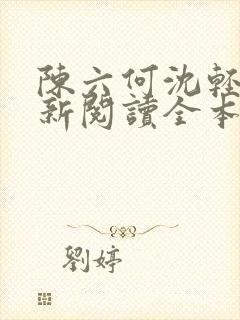 陳六何沈輕
新閱讀全本
劉婷